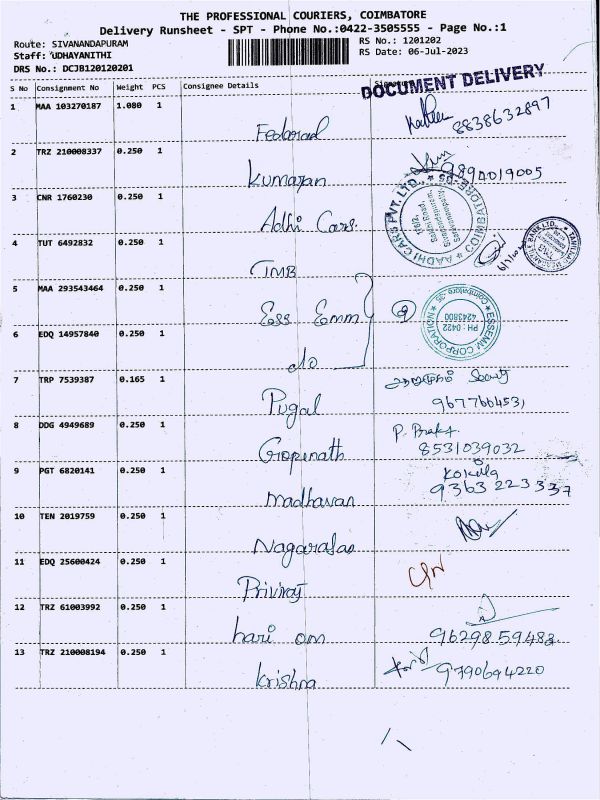 THE PROFESSIONAL COURIERS, COIMBATORE
Delivery Runsheet - SPT - Phone No.:0422-3505555 - Page No.:1
Route: SIVANANDAPURAM RS No.: 1201202
Staff: UDHAYANITHI RS Date: 06-Jul-2023
DRS No.: DCJB120120201
DOCUMENT DELIVERY
S No Consignment No Weight PCS Consignee Details Signature
1 MAA 103270187 1.080 1
Federal 8838632897
2 TRZ 210008337 0.250 1
Kumaran 9894019005
3 CNR 1760230 0.250 1
Adhi Cars.
AADHI CARS PVT. LTD., COIMBATORE-35
4 TUT 6492832 0.250 1
TMB
5 MAA 293543464 0.250 1
Ess Emm
ESSEMM CORPORATION Coimbatore-35
PH: 0422
4243800
6 EDQ 14957840 0.250 1
do
7 TRP 7539387 0.165 1
Pugal 9677664531
8 DDG 4949689 0.250 1
Gopinath 8531039032
9 PGT 6820141 0.250 1
Kokila
madhavan 9363223337
10 TEN 2019759 0.250 1
11 EDQ 25600424 0.250 1
12 TRZ 61003992 0.250 1
hari om 9629859483
13 TRZ 210008194 0.250 1
Krishna 9790694220